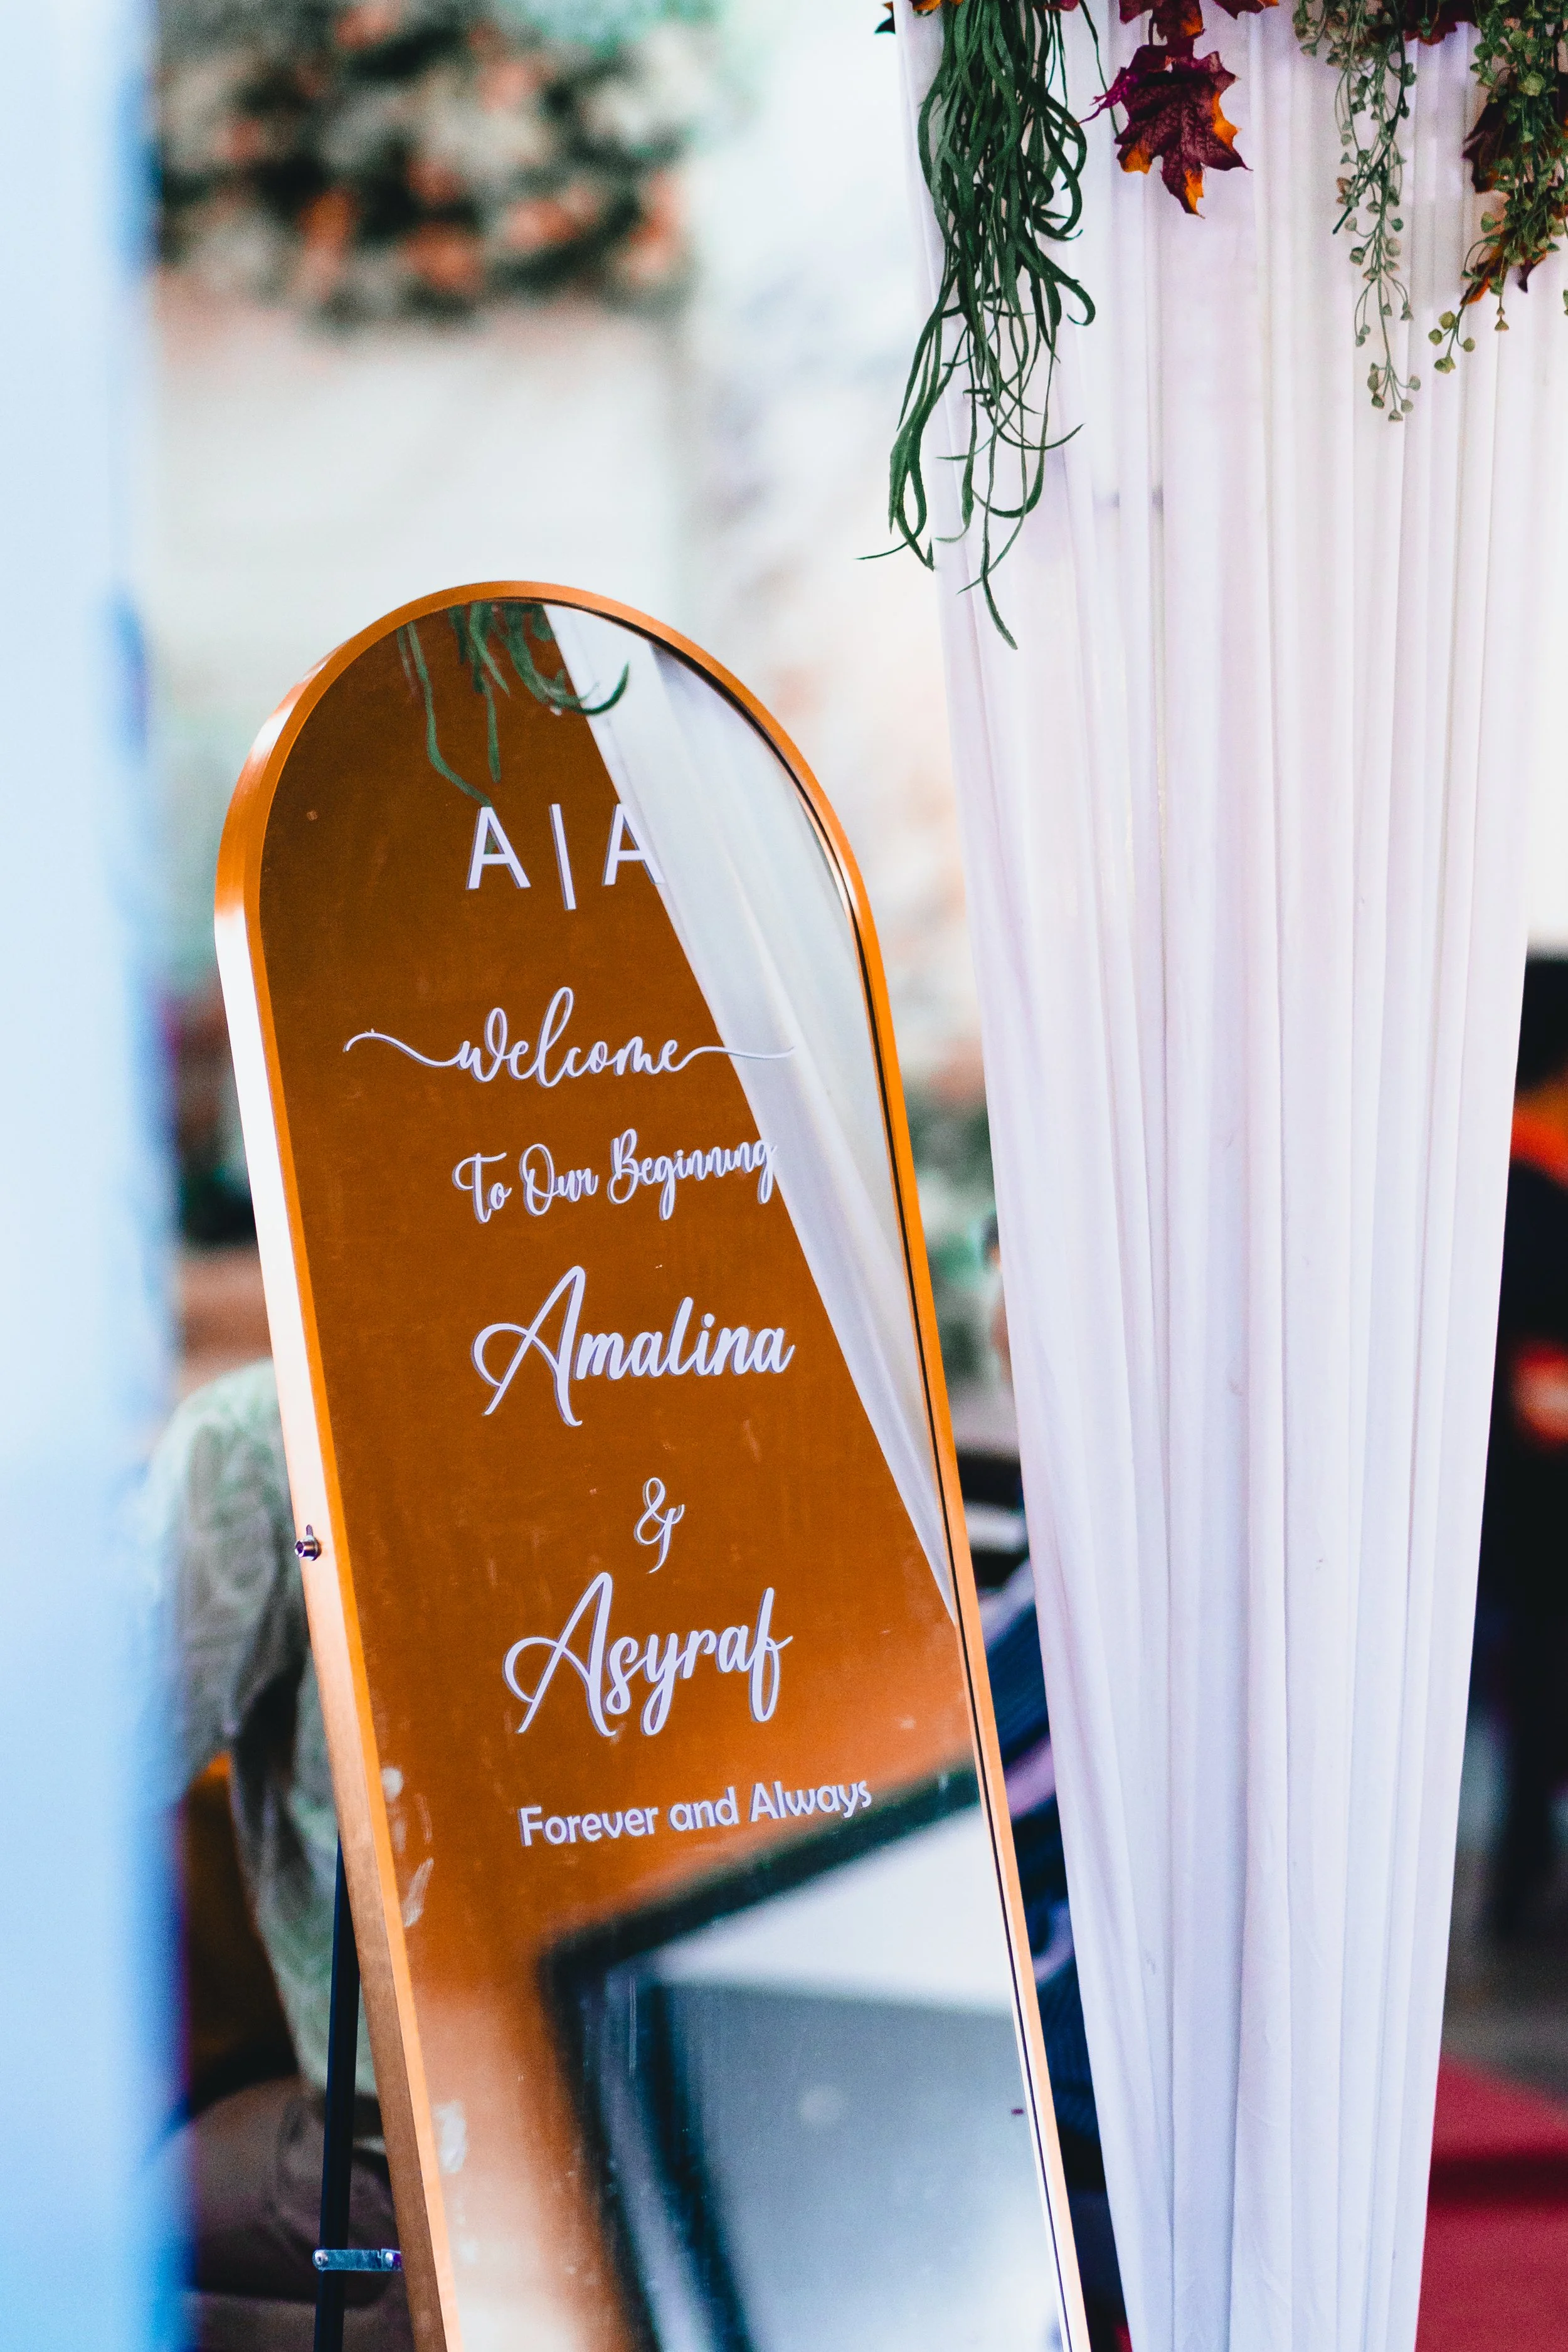 A|A
welcome
To Our Beginning
Amalina
&
Asyraf
Forever and Always